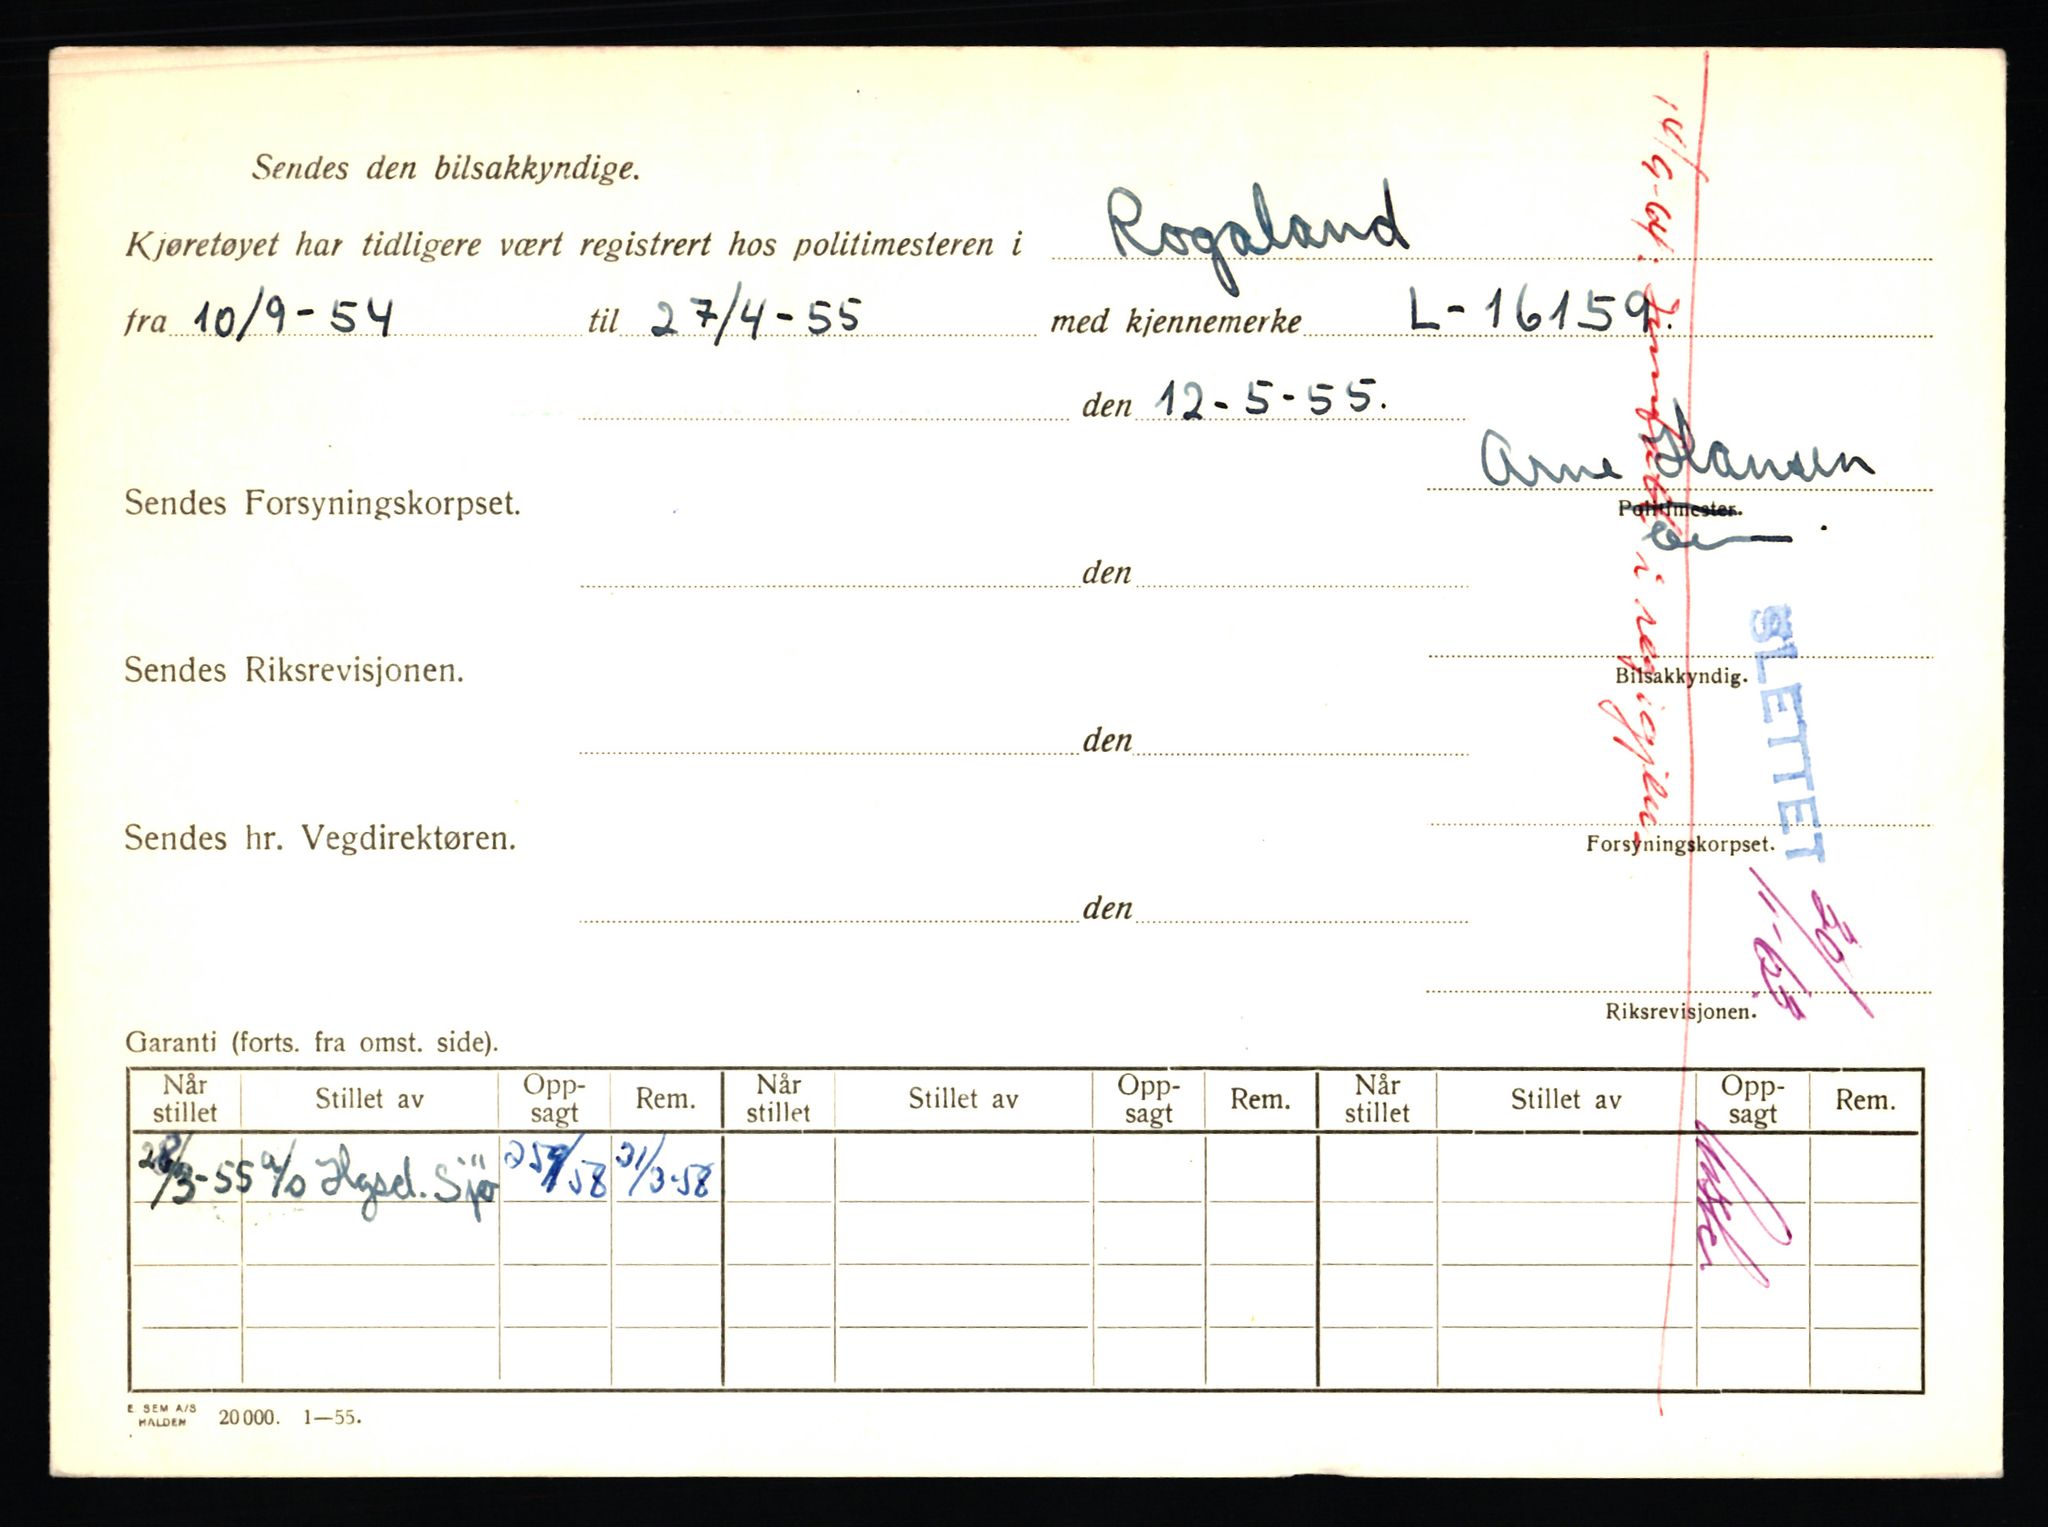 Sendes den bilsakkyndige.
Kjøretøyet har tidligere vært registrert hos politimesteren i Rogaland
fra 10/9-54 til 27/4-55 med kjennemerke L-16159.
den 12-5-55.
Arne Hansen
Sendes Forsyningskorpset.
Politimester.
den
Sendes Riksrevisjonen.
Bilsakkyndig.
den
Sendes hr. Vegdirektøren.
Forsyningskorpset.
den
Riksrevisjonen.
SLETTET
20/1-65
Garanti (forts. fra omst. side).
Når stillet Stillet av Opp-sagt Rem. Når stillet Stillet av Opp-sagt Rem. Når stillet Stillet av Opp-sagt Rem.
28/3-55 a/s Hgsd. Sjø 58 31/3-58
E. SEM A/S
HALDEN 20000. 1—55.